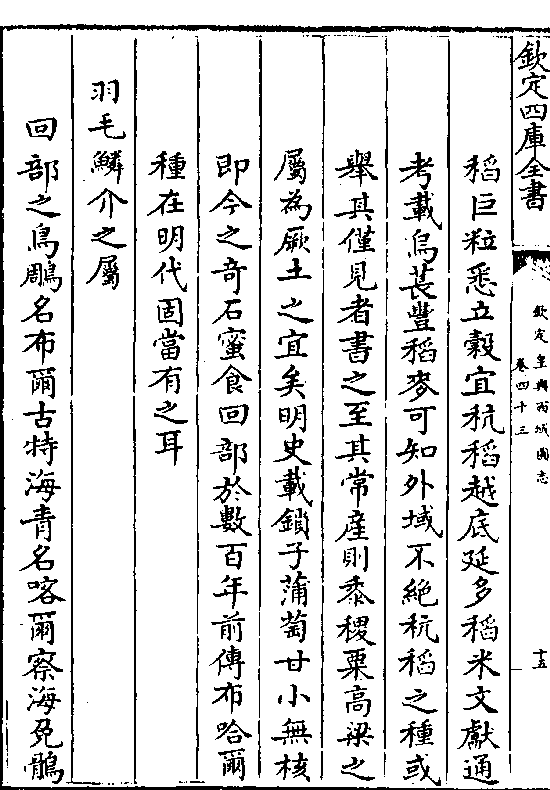 欽定四庫全書
欽定皇輿西域圖志
卷四十三
十五
稻巨粒悉立穀宜秔稻越底延多稻米文獻通
考載烏萇豐稻麥可知外域不絶秔稻之種或
舉其僅見者書之至其常産則黍稷粟高粱之
屬為厥土之宜矣明史載鎖子蒲萄甘小無核
即今之竒石蜜食回部於數百年前傳布哈爾
種在明代固當有之耳
羽毛鱗介之屬
回部之鳥鵰名布爾古特海青名喀爾察海兎鶻